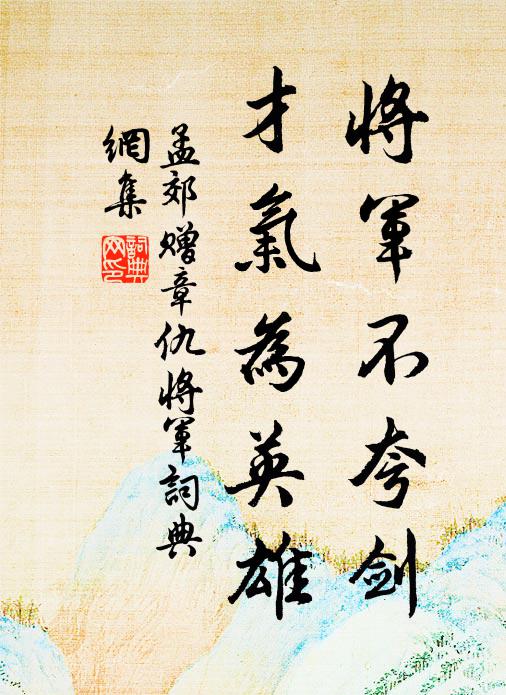 將軍不夸劍
才氣為英雄
孟郊贈章仇將軍詞典
網集
詞典
网印